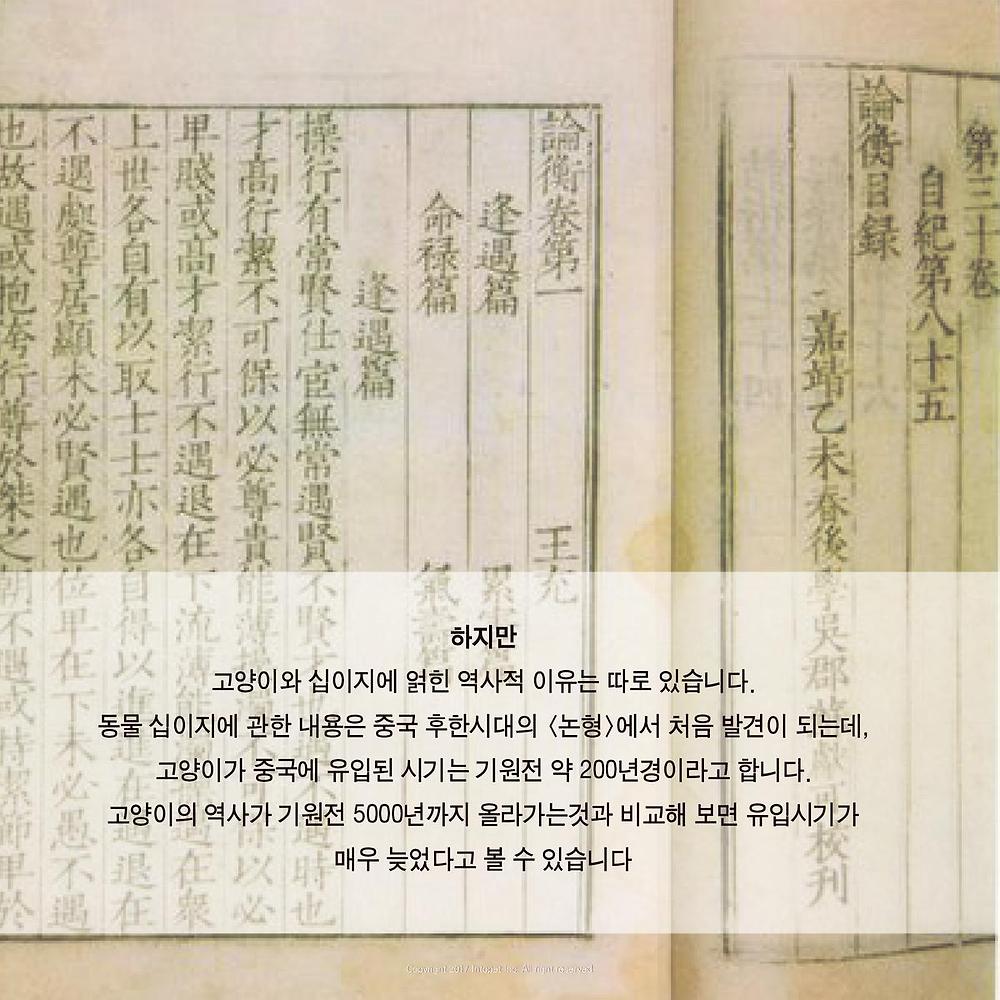 第三十卷
自紀第八十五
論衡目録
嘉靖乙未春後學吳郡蘇獻可校刊
論衡卷第一 王充
逢遇篇 累害篇
命禄篇 氣壽篇
逢遇篇
操行有常賢仕宦無常遇賢不賢才也遇不遇時也
才高行絜不可保以必尊貴能薄操濁不可保以必
卑賤或高才絜行不遇退在下流薄能濁操遇在衆
上世各自有以取士士亦各自得以進進在遇退在
不遇處尊居顯未必賢遇也位卑在下未必愚不遇
也故遇或抱洿行尊於桀之朝不遇或持絜節卑於
하지만
고양이와 십이지에 얽힌 역사적 이유는 따로 있습니다.
동물 십이지에 관한 내용은 중국 후한시대의 〈논형〉에서 처음 발견이 되는데,
고양이가 중국에 유입된 시기는 기원전 약 200년경이라고 합니다.
고양이의 역사가 기원전 5000년까지 올라가는것과 비교해 보면 유입시기가
매우 늦었다고 볼 수 있습니다
Copyright 2017 Intopet Inc. All right reserved